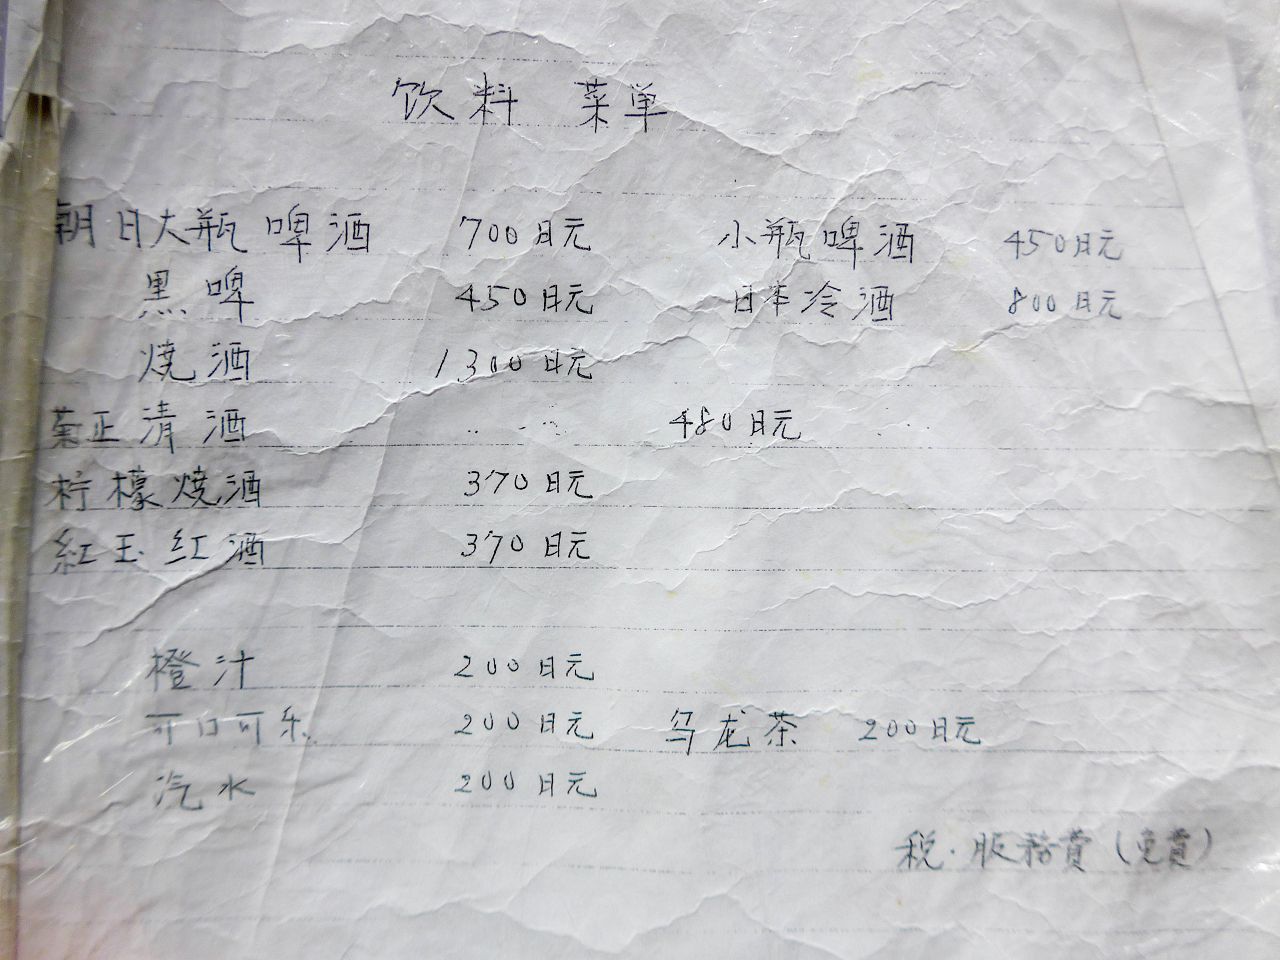 饮料 菜单
朝日大瓶啤酒 700日元 小瓶啤酒 450日元
黑啤 450日元 日本冷酒 800日元
烧酒 1300日元
菊正清酒 480日元
柠檬烧酒 370日元
紅玉红酒 370日元
橙汁 200日元
可口可乐 200日元 乌龙茶 200日元
汽水 200日元
税·服務費(免費)